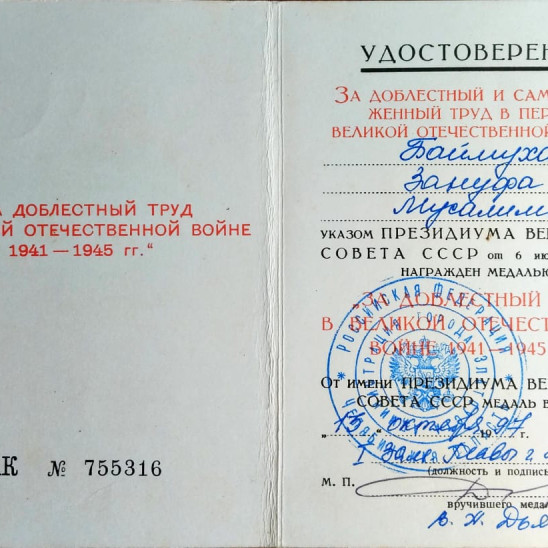 А ДОБЛЕСТНЫЙ ТРУД
ОЙ ОТЕЧЕСТВЕННОЙ ВОЙНЕ
1941 — 1945 гг."
К № 755316
УДОСТОВЕРЕН
ЗА ДОБЛЕСТНЫЙ И САМ
ЖЕННЫЙ ТРУД В ПЕР
ВЕЛИКОЙ ОТЕЧЕСТВЕННОЙ
Баймуха
Зануфа
Мусалим
УКАЗОМ ПРЕЗИДИУМА ВЕР
СОВЕТА СССР от 6 ию
НАГРАЖДЕН МЕДАЛЬЮ
„ЗА ДОБЛЕСТНЫЙ
В ВЕЛИКОЙ ОТЕЧЕСТ
ВОЙНЕ 1941—1945
РОССИЙСКАЯ ФЕДЕРАЦИЯ
От имени ПРЕЗИДИУМА ВЕР
СОВЕТА СССР МЕДАЛЬ В
„15" октября 1997 г.
I Зам. Главы г.
(должность и подпись
М. П.
вручившего меда